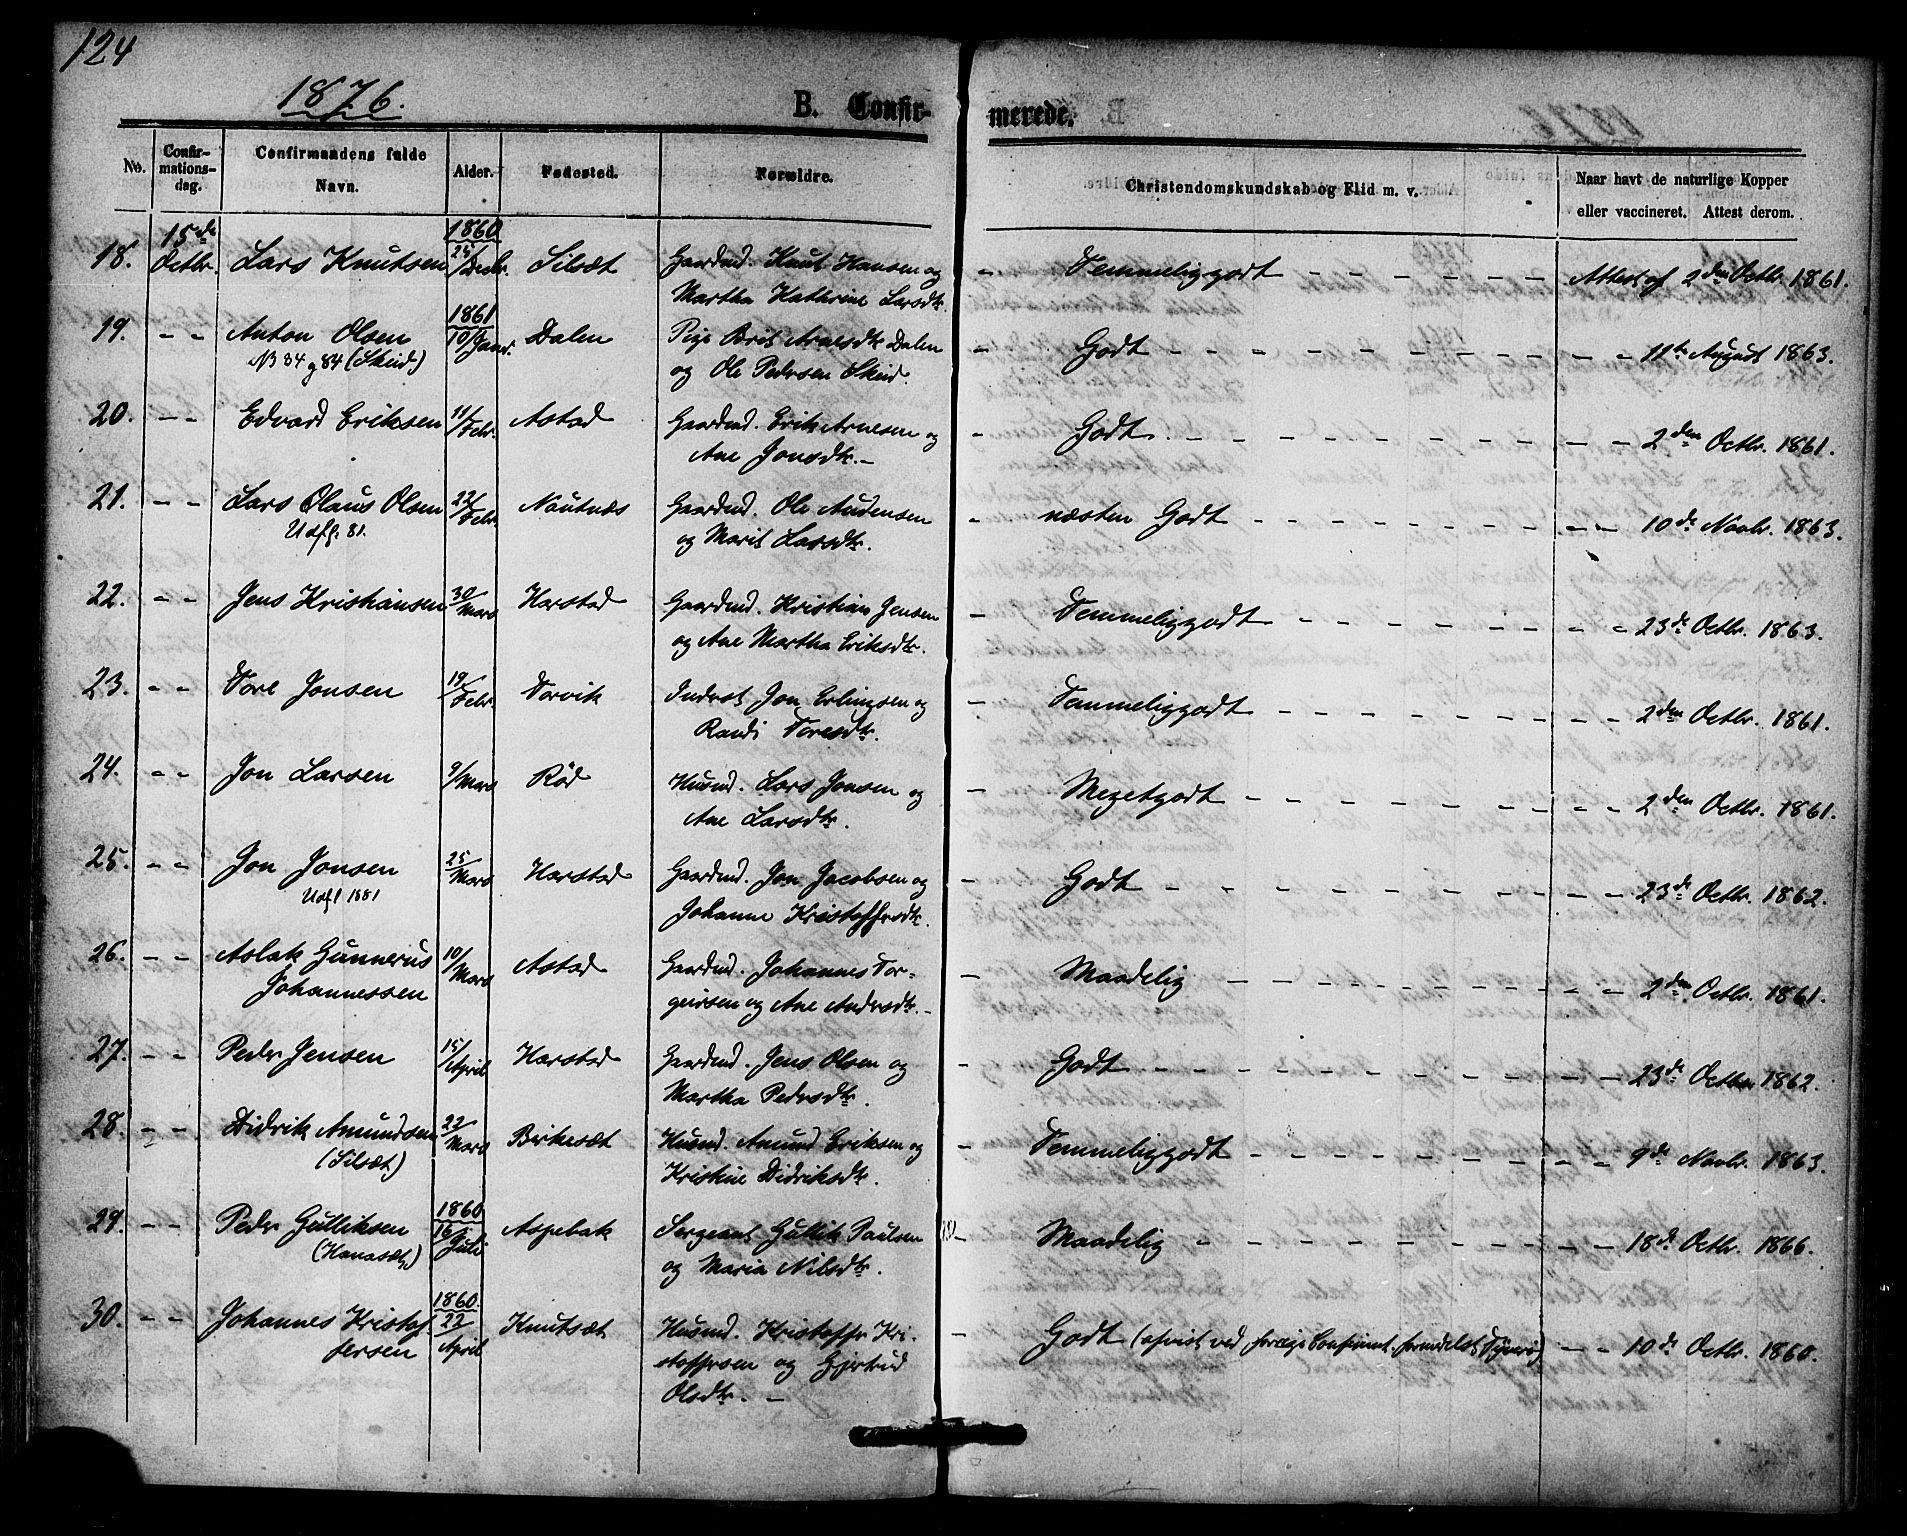 124
1876.
B. Confir-
merede.
No.
Confir-
mations-
dag.
Confirmandens fulde
Navn.
Alder.
Fødested.
Forældre.
Christendomskundskab og Flid m. v.
Naar havt de naturlige Kopper
eller vaccineret. Attest derom.
18. 15de Octbr. Lars Knutsen 1860 24/Decbr. Silsæt Gaardmd. Knut Hansen og - Temmeliggodt - - - - - - - Attest af 2den Octbr. 1861.
Martha Kathrine Larsdtr.
19. - - Anton Olsen 1861 10/Janr. Dalen Pige Brit Arnesdtr Dalen - Godt - - - - - - - 11te August 1863.
NB 34 g 84 (Skeid.) og Ole Pedersen Skeid.
20. - - Edvard Eriksen 11/Febr. Astad Gaardmd. Erik Arnesen og - Godt. - - - - - - - 2den Octbr. 1861.
Ane Jonsdtr. -
21. - - Lars Olaus Olsen 22/Febr. Nautnes Gaardmd. Ole Audensen - næsten Godt - - - - - - - 10de Novbr. 1863.
Udfl. 81. og Marit Larsdtr.
22. - - Jens Kristiansen 30/Mars Harstad Gaardmd. Kristian Jensen - Temmeliggodt - - - - - - - 23de Octbr. 1863.
og Ane Martha Eriksdtr.
23. - - Tore Jonsen 19/Febr. Torvik Inderst Jon Erlingsen og - Temmeliggodt - - - - - - - 2den Octbr. 1861.
Randi Toresdtr.
24. - - Jon Larsen 9/Mars Rød Husmd. Lars Jonsen og - Megetgodt - - - - - - - 2den Octbr. 1861.
Ane Larsdtr.
25. - - Jon Jonsen 25/Mars Harstad Gaardmd. Jon Jacobsen og - Godt - - - - - - - 23de Octbr. 1862.
Udfl 1881 Johanne Kristoffersdtr.
26. - - Aslak Gunnerus 10/Mars Astad Gaardmd. Johannes Tor- - Maadelig - - - - - - - 2den Octbr. 1861.
Johannessen geirsen og Ane Andersdtr. -
27. - - Peder Jensen 15/April Harstad Gaardmd. Jens Olsen og - Godt - - - - - - - 23de Octbr 1862.
Martha Pedersdtr.
28. - - Didrik Amundsen 22/Mars Birkesæt Husmd. Amund Eriksen og - Temmeliggodt - - - - - - - 9de Novbr. 1863.
(Silsæt) Kristine Didriksdtr.
29. - - Peder Gulliksen 1860 16/Juli Aspebak Sergeant Gullik Paulsen - Maadelig - - - - - - - 18de Octbr. 1866.
(Hanasæt) og Maria Nilsdtr.
30. - - Johannes Kristof- 1860. 22/April Knutsæt Husmd. Kristoffer Kri- - Godt (afvist ved forrige Confirmat. formedelst Tyveri) - - 10de Octbr. 1860.
fersen stoffersen og Gjertrud
Olsdtr. -